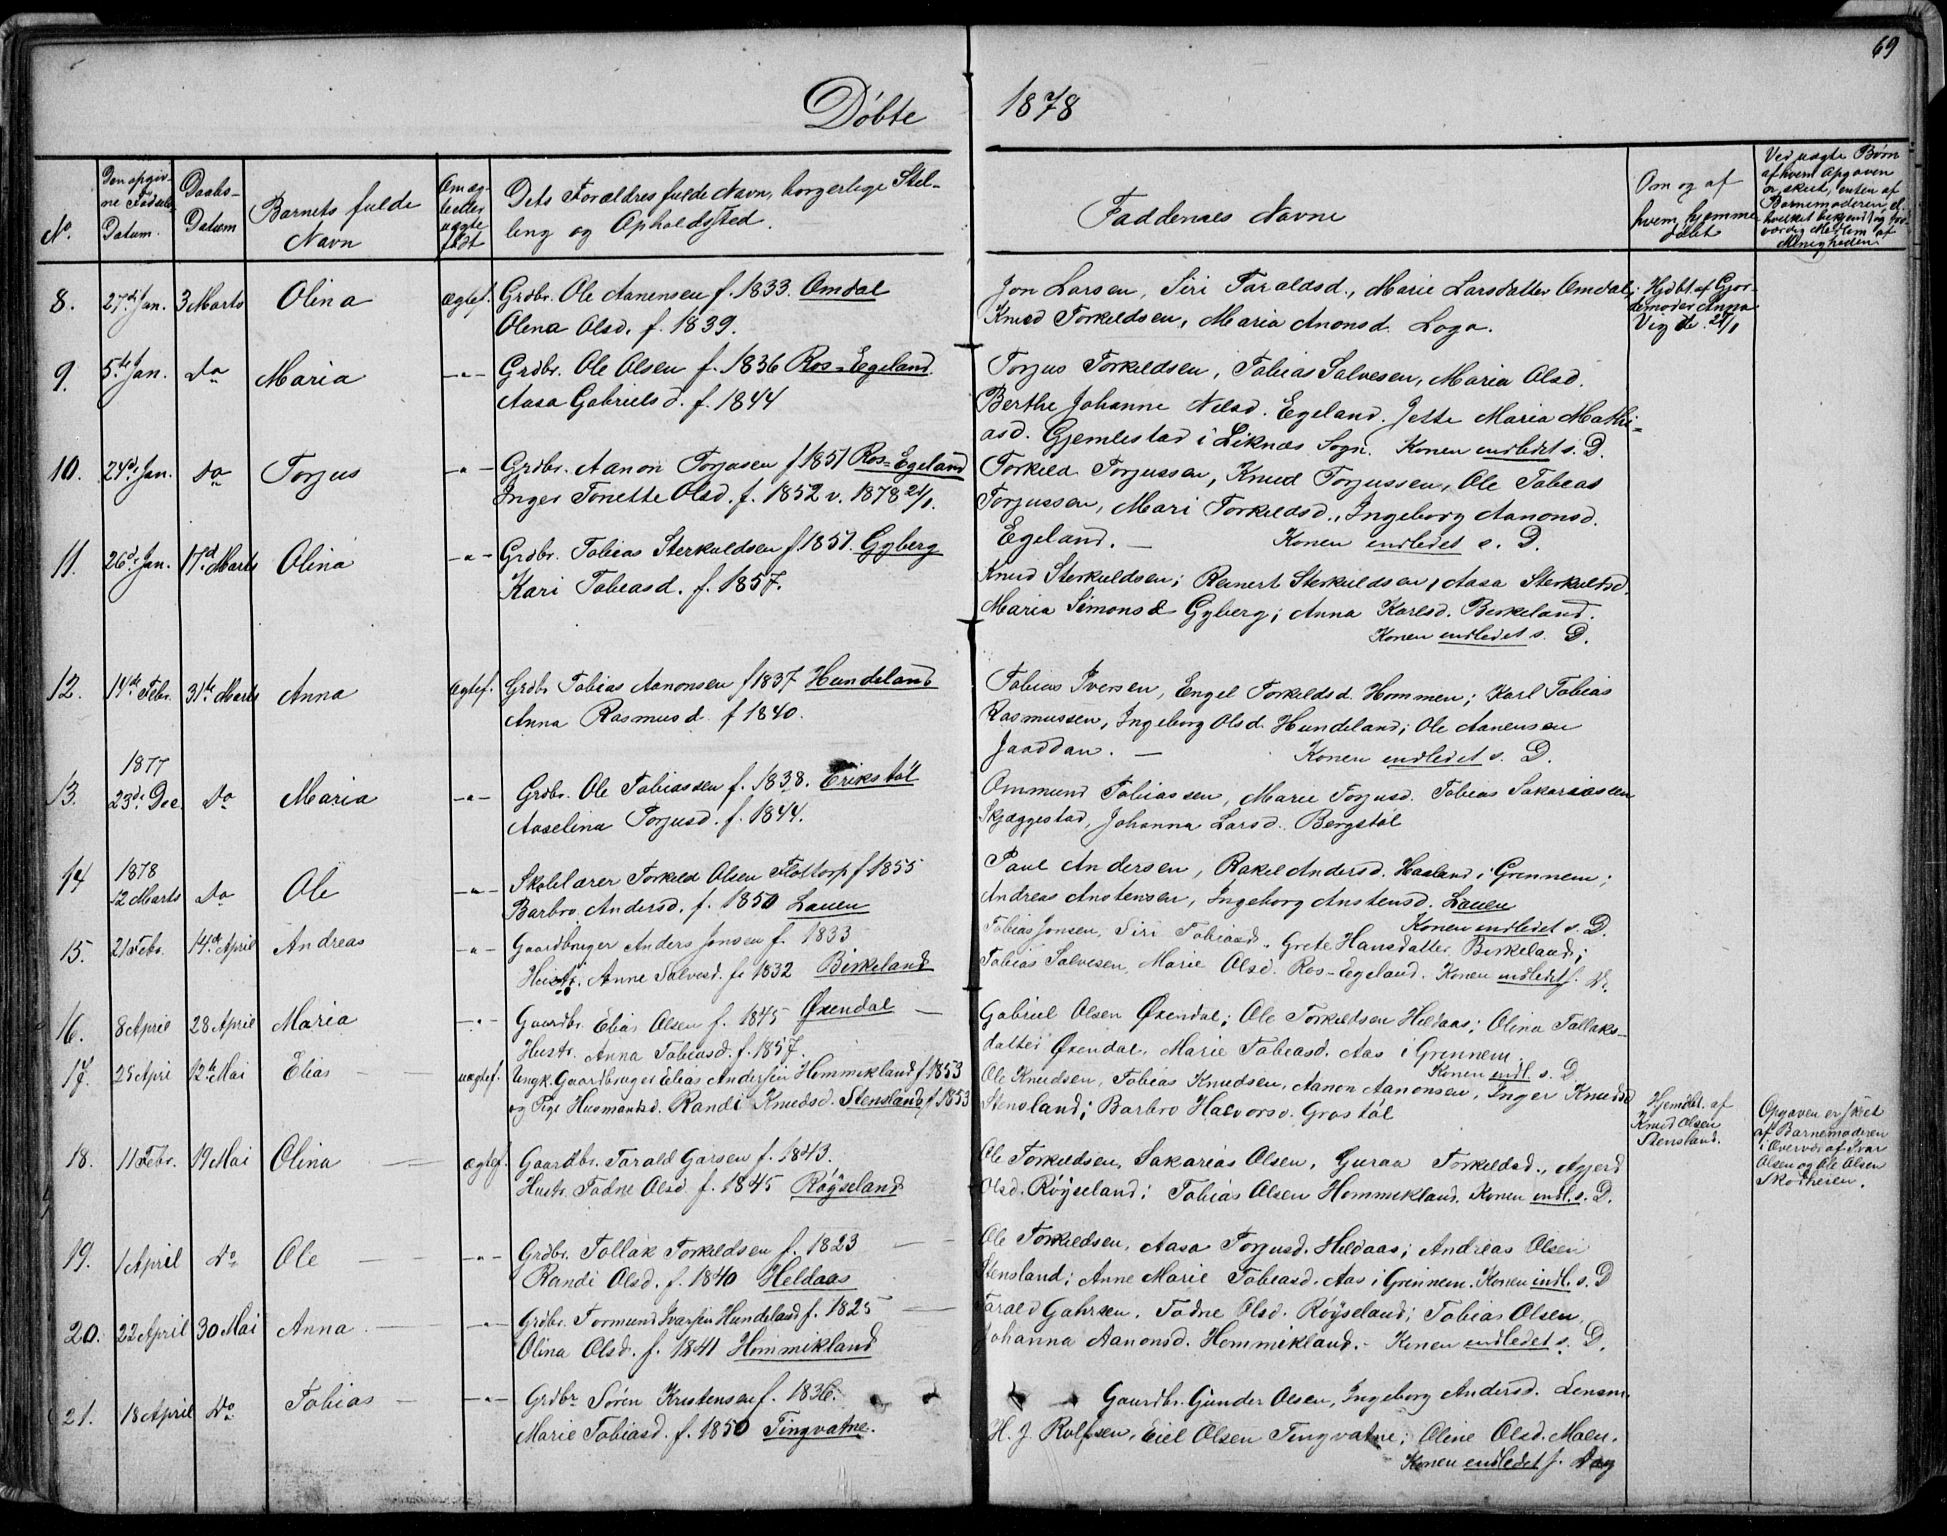 69
Döbte 1878
No.
Den opgivne Fødsels Datum.
Daabs-Datum
Barnets fulde Navn
Om ægtefødt eller uægte født
Dets Forældres fulde Navn, borgerlige Stilling og Opholdssted.
Faddernes Navne
Om og af hvem hjemmedöbt
8. 27de Jan. 3 Marts Olina Ægtef. Grdbr. Ole Aanensen f. 1833. Omdal
Olena Olsd. f. 1839.
Jon Larsen, Siri Taraldsd., Marie Larsdatter Omdal,
Knud Torkildsen, Maria Anonsd. Loga.
Hjdbt. af Gjordemoder Anna Vig d. 28/1
9. 5te Jan. Do Maria -"- Grdbr. Ole Olsen f. 1836 Ros-Egeland.
Aasa Gabrielsd. f. 1844
Torjus Torkildsen, Tobias Salvesen, Maria Olsd.
Berthe Johanne Nilsd. Egeland. Jette Maria Mathiasd. Gjemlestad i Liknæs Sogn. Konen indledet s. D.
10. 24de Jan. Do Torjus -"- Grdbr. Aanon Torjusen f 1851 Ros-Egeland
Inger Tonette Olsd. f. 1852 v. 1878 21/1.
Torkild Torjussen, Knud Torjussen, Ole Tobias
Torjussen, Mari Torkildsd., Ingeborg Aanonsd.
Egeland. — Konen indledet s. D.
11. 26d. Jan. 17d Marts Olina -"- Grdbr. Tobias Sterkuldsen f 1851. Gyberg
Kari Tobiasd. f. 1857.
Knud Sterkuldsen; Reinert Sterkuldsen, Aasa Sterkuldsd.
Maria Simonsd Gyberg; Anna Karlsd. Birkeland.
Konen indledet s. D.
12. 14de Febr. 31te Marts Anna Ægtef. Grdbr Tobias Aanonsen f 1837 Hundeland
Anna Rasmusd. f 1840.
Tobias Iversen, Engel Torkildsd. Hommen; Karl Tobias
Rasmussen, Ingeborg Olsd. Hundeland; Ole Aanensen
Jaaddan. — Konen indledet s. D.
1877
13. 23de Dec. Do Maria -"- Grdbr. Ole Tobiassen f. 1838. Erikstöl
Aaselina Torjusd. f. 1844.
Ommund Tobiassen, Marie Torjusd. Tobias Sakariassen
Skjæggestad, Johanna Larsd. Bergstöl
1878
14 12 Marts Do Ole -"- Skolelærer Torkild Olsen Flottorp f 1855
Barbro Andersd. f. 1850 Lauen
Paul Andersen, Rakel Andersd. Haaland i Grennem;
Andreas Anstensen, Ingeborg Anstensd. Lauen
Konen indledet s. D.
15. 21 Febr. 14de April Andreas -"- Gaardbruger Anders Jonsen f. 1833
Hustr. Anne Salvesd. f. 1832 Birkeland
Tobias Jonsen, Siri Tobiasd., Grete Hansdatter Birkeland;
Tobias Salvesen, Marie Olsd. Ros-Egeland. Konen indledet s. D.
16. 8 April 28 April Maria -"- Gaardbr. Elias Olsen f. 1845 Øxendal —
Hustr. Anna Tobiasd. f. 1857.
Gabriel Olsen Øxendal; Ole Torkildsen Heldaas; Olina Tollaks-
datter Øxendal. Marie Tobiasd. Aas i Grennem.
Konen indl. s. D
17. 25 April 12te Mai Elias — uægtef. Ungk. Gaardbruger Elias Andersen Hommikland f 1853
og Pige Husmandsd. Randi Knudsd. Stensland f 1853
Ole Knudsen, Tobias Knudsen, Aanon Aanonsen, Inger Knudsd
Stensland; Barbro Halvorsd. Grostöl
Hjemdbt. af Knud Olsen Stensland.
Opgaven er skeet af Barnemoderen i Overvær af Ivar Olsen og Ole Olsen Skodheien.
18. 11 Febr. 19 Mai Olina — Ægtef. Gaardbr. Tarald Garsen f. 1843.
Hustr. Tadne Olsd. f. 1845 Röyseland
Ole Torkildsen, Sakarias Olsen, Guraa Torkildsd., Asjerd
Olsd. Röyseland; Tobias Olsen Hommikland. Konen indl. s. D.
19. 1 April Do Ole — -"- Grdbr. Tollak Torkildsen f. 1823
Randi Olsd. f. 1840 Heldaas
Ole Torkildsen, Aasa Torjusd. Heldaas; Andreas Olsen
Stensland; Anne Marie Tobiasd. Aas i Grennem. Konen indl. s. D
20. 22 April 30 Mai Anna — -"- Grdbr. Tormund Ivarsen Hundeland f. 1825
Olina Olsd. f. 1841 Hommikland
Tarald Gahrsen, Tadne Olsd. Röyseland; Tobias Olsen,
Johanna Aanonsd. Hommikland. - Konen indledet s. D.
21. 18 April Do Tobias — -"- Grdbr Sören Kristensen f. 1836.
Marie Tobiasd. f. 1850 Tingvatne.
Gaardbr. Gunder Olsen, Ingeborg Andersd. Lensm.
H. J. Rolfsen, Eiel Olsen Tingvatne; Oline Olsd. Moen.
Konen indledet s. Dag